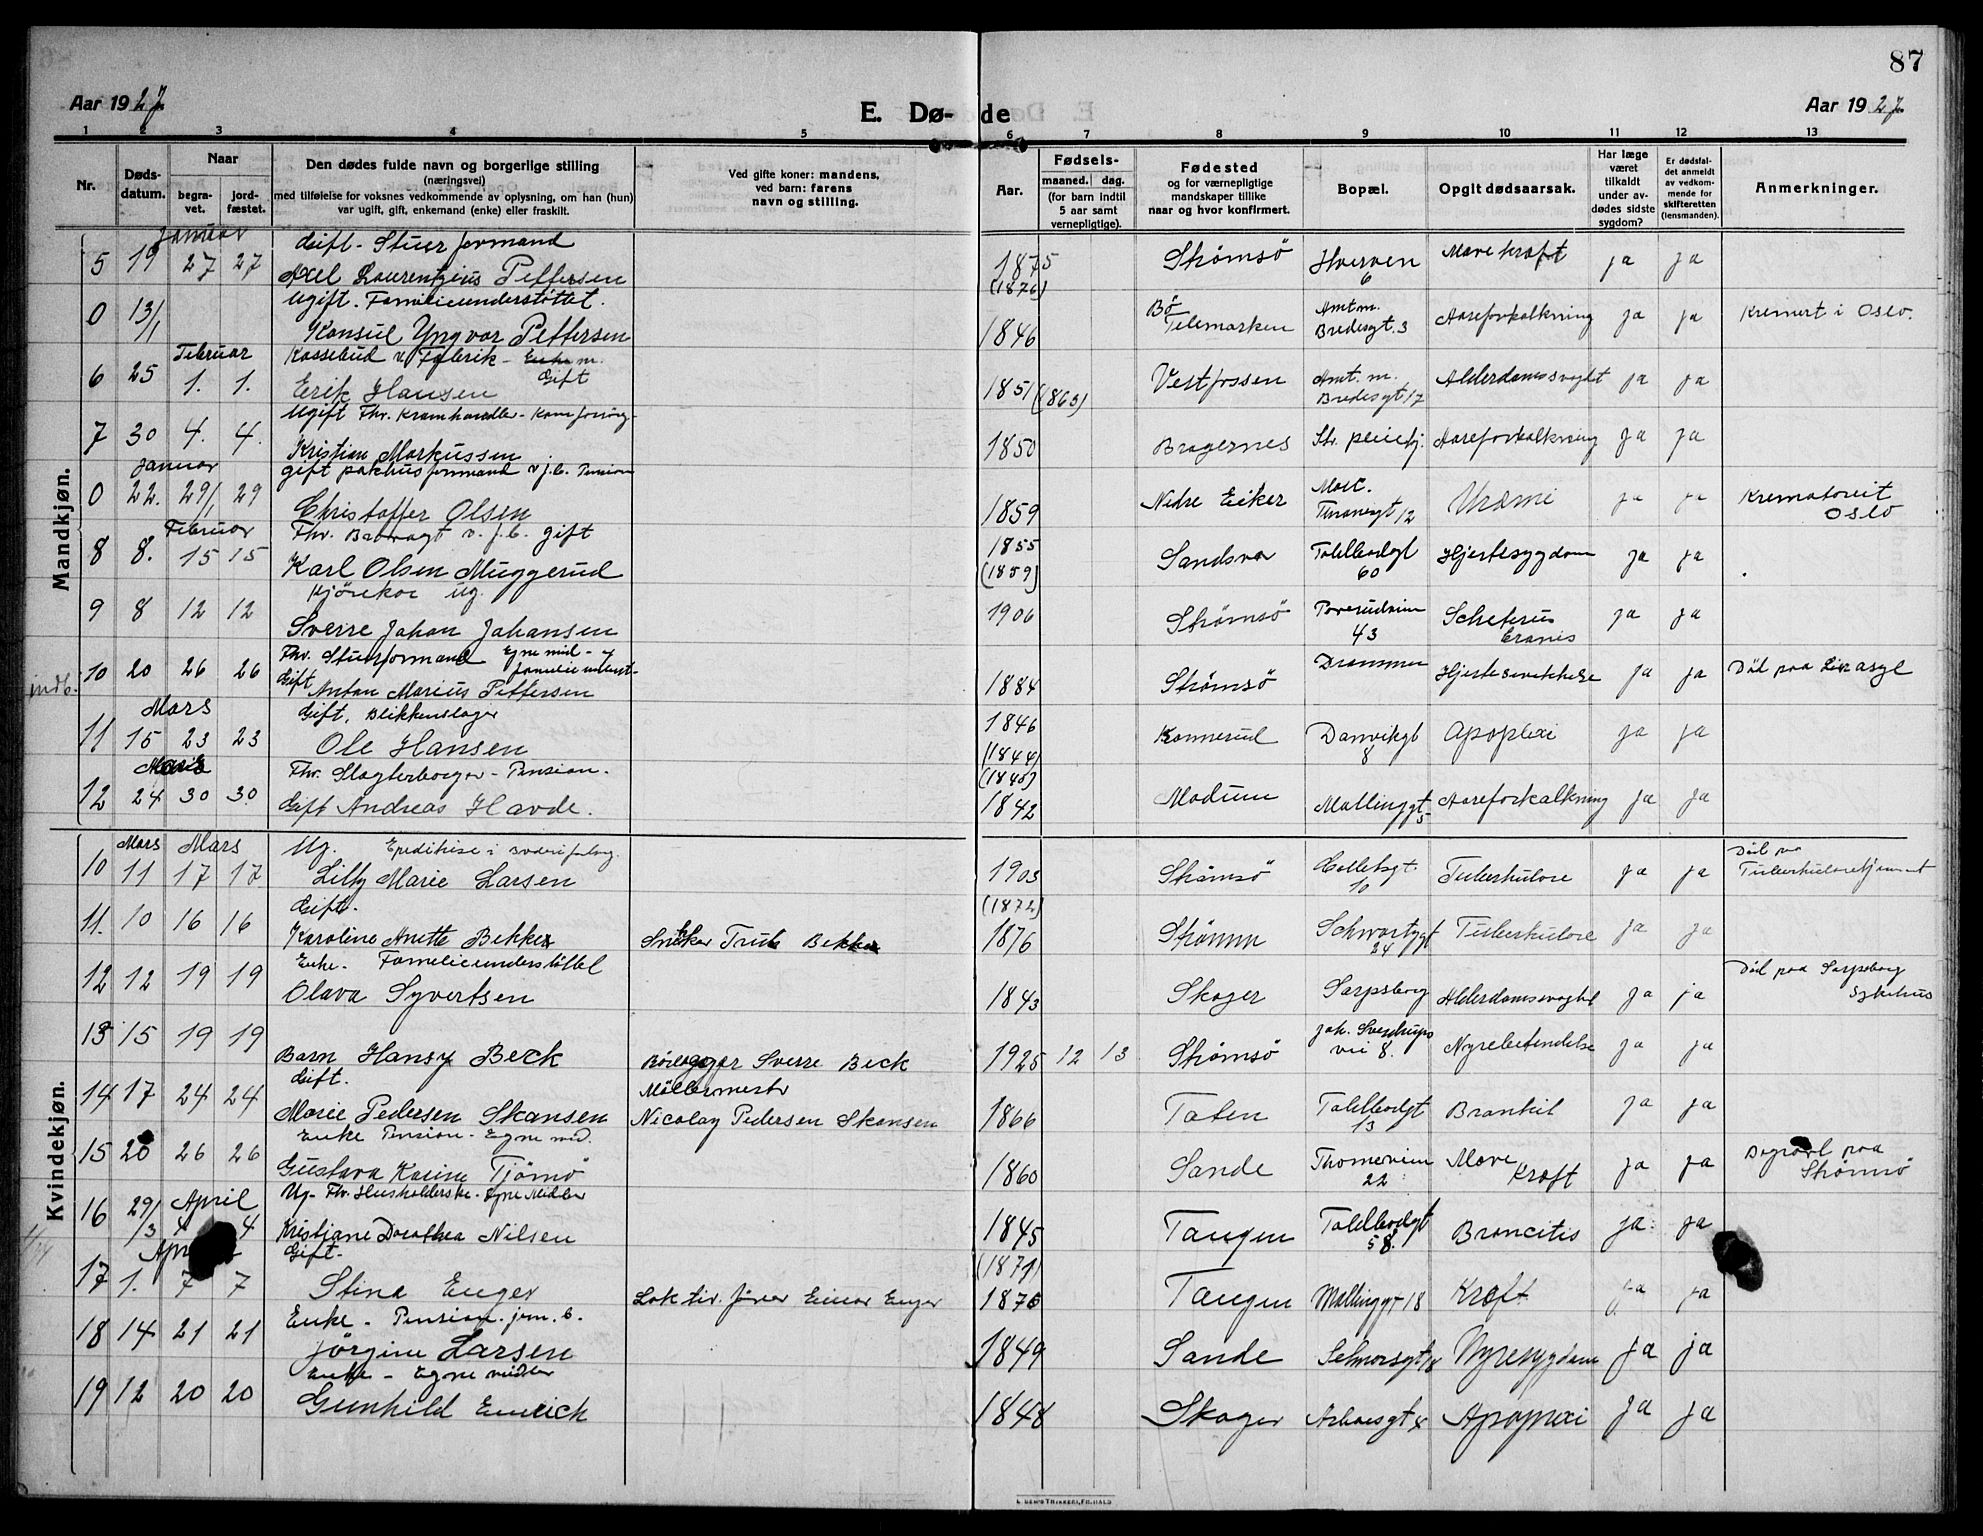 87
Aar 1927
E. Dø-
de
Aar 1927
1 2 3 4 5 6 7 8 9 10 11 12 13
Nr.
Døds-
datum.
Naar
begra-
vet.
jord-
fæstet.
Den dødes fulde navn og borgerlige stilling
(næringsvei)
med tilføielse for voksnes vedkommende av oplysning, om han (hun)
var ugift, gift, enkemand (enke) eller fraskilt.
Ved gifte koner: mandens,
ved barn: farens
navn og stilling.
Aar.
Fødsels-
maaned. dag.
(for barn indtil
5 aar samt
vernepligtige).
Fødested
og for værnepligtige
mandskaper tillike
naar og hvor konfirmert.
Bopæl.
Opgit dødsaarsak.
Har læge
været
tilkaldt
under av-
dødes sidste
sygdom?
Er dødsfal-
det anmeldt
av vedkom-
mende for
skifteretten
(lensmanden).
Anmerkninger.
Mandkjøn.
Januar
Gift - Stuer formand
5 19 27 27 Axel Laurentzius Pettersen 1875 (1876) Strømsö Hverven 6 Mavekræft ja ja
Ugift. Familieunderstøttet.
0 13/1 Konsul Yngvar Pettersen 1846 Bö Telemarken Amtm. Bredesgt. 3 Aareforkalkning ja ja Kremert i Oslo.
Februar
Kassebud v Fabrik - Enkem. Gift
6 25 1. 1. Erik Hansen 1851 (1863) Vestfossen Amt. m. Bredesgt 17 Alderdomssvaght ja ja
Ugift Fhv. Kramhandler - Kom forsörg-
7 30 4. 4. Kristian Markussen 1850 Bragernes Str. pleiehj. Aareforkalkning ja ja
Januar
gift pakhusformand v j.b. Pension
0 22. 29/1 29 Christoffer Olsen 1859 Nedre Eiker 12 Uræmi ja ja Krematoriet Oslo
Februar
Fhv. v. j.b. gift
8 8. 15 15 Karl Olsen Muggerud 1855 (1859) Sandsvær Toldbodgt 60 Hjertesygdom ja ja
Kjörekar ug.
9 8 12 12 Sverre Johan Johansen 1906 Strømsö 43 ja ja
indb.
Fhv. Stuerformand Egne mid- - familie underst-
10 20 26 26 Gift Anton Marius Pettersen 1884 Strømsö Drammen Hjertesvækkelse ja ja Död paa
Mars
Gift, Blikkenslager
11 15 23 23 Ole Hansen 1846 (1844) Konnerud Danvikgt 8 Apoplexi ja ja
Mars
Fhv. Slagterborger - Pension.
12 24 30 30. Gift Andreas Havde. (1840) 1842 Modum Mallinggt 5 Aareforkalkning ja ja
Kvindekjøn.
Mars Mars
Ug.
10 11 17 17 Lilly Marie Larsen 1903 Strømsö 10 Tuberkulose ja ja Död paa Tuberkulosehjemmet
Gift.
11. 10 16 16 Karoline Anette Bekker Snekker Bekker (1872) 1876 Strømm Schwartzgt 24 Tuberkulose ja ja
Enke. Familieunderstøttet
12 12 19 19 Olava Syvertsen 1843 Skoger Sarpsborg Alderdomssvaghet ja ja Död paa Sarpsborg Sykehus
13 15 19 19 Barn Hansy Beck Sverre Beck 1925 12 13 Strømsö Joh. Sverdrups vei 8. Nyrebetendelse ja ja
Gift.
14 17 24 24 Marie Pedersen Skansen Möllermester Nicolay Pedersen Skansen 1866 Toten Toldbodgt 13 Bronkit ja ja
Enke Pension - Egne mid.
15 20 26 26 Gustava Karine Tjömö 1860 Sande Thornevien 22 Mave Kræft ja ja Strømsö
April
Ug- Fhv. Husholderske - Egne Midler
16 29/3 4 4 Kristjane Dorothea Nilsen 1845 Tangen Toldbodgt 58. Broncitis ja ja
April
Gift-
17 1. 7 7 Stina Enger Lok tiv. förer Einar Enger (1871) 1876 Tangen Mallinggt 18 Kræft ja ja
Enke - Pension. jern. b.
18 14 21 21 Jörgine Larsen 1849 Sande Nyresygdom ja ja
Enke - Egne midler
19 12 20 20 Gunhild Emrick 1848 Skoger Apoplexi ja ja